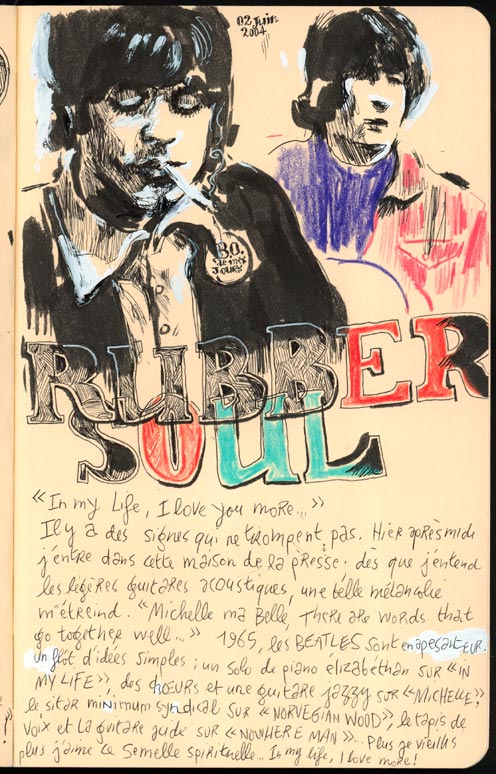 02 Juin
2004
B.O.
de mes
jours
RUBBER
SOUL
« In my Life, I love you more... »
Il y a des signes qui ne trompent pas. Hier après midi
j'entre dans cette maison de la presse. dès que j'entend
les légères guitares acoustiques, une belle mélancolie
m'étreind. « Michelle ma Belle, There are words that
go together well... » 1965, les BEATLES sont en apesanteur.
un flot d'idées simples ; un solo de piano élizabéthan sur « IN
MY LIFE », des chœurs et une guitare jazzy sur « MICHELLE »,
le sitar minimum syndical sur « NORVEGIAN WOOD », le tapis de
voix et la guitare aude sur « NOWHERE MAN »... Plus je vieillis
plus j'aime ce Semelle spirituelle... In my life, I love more!